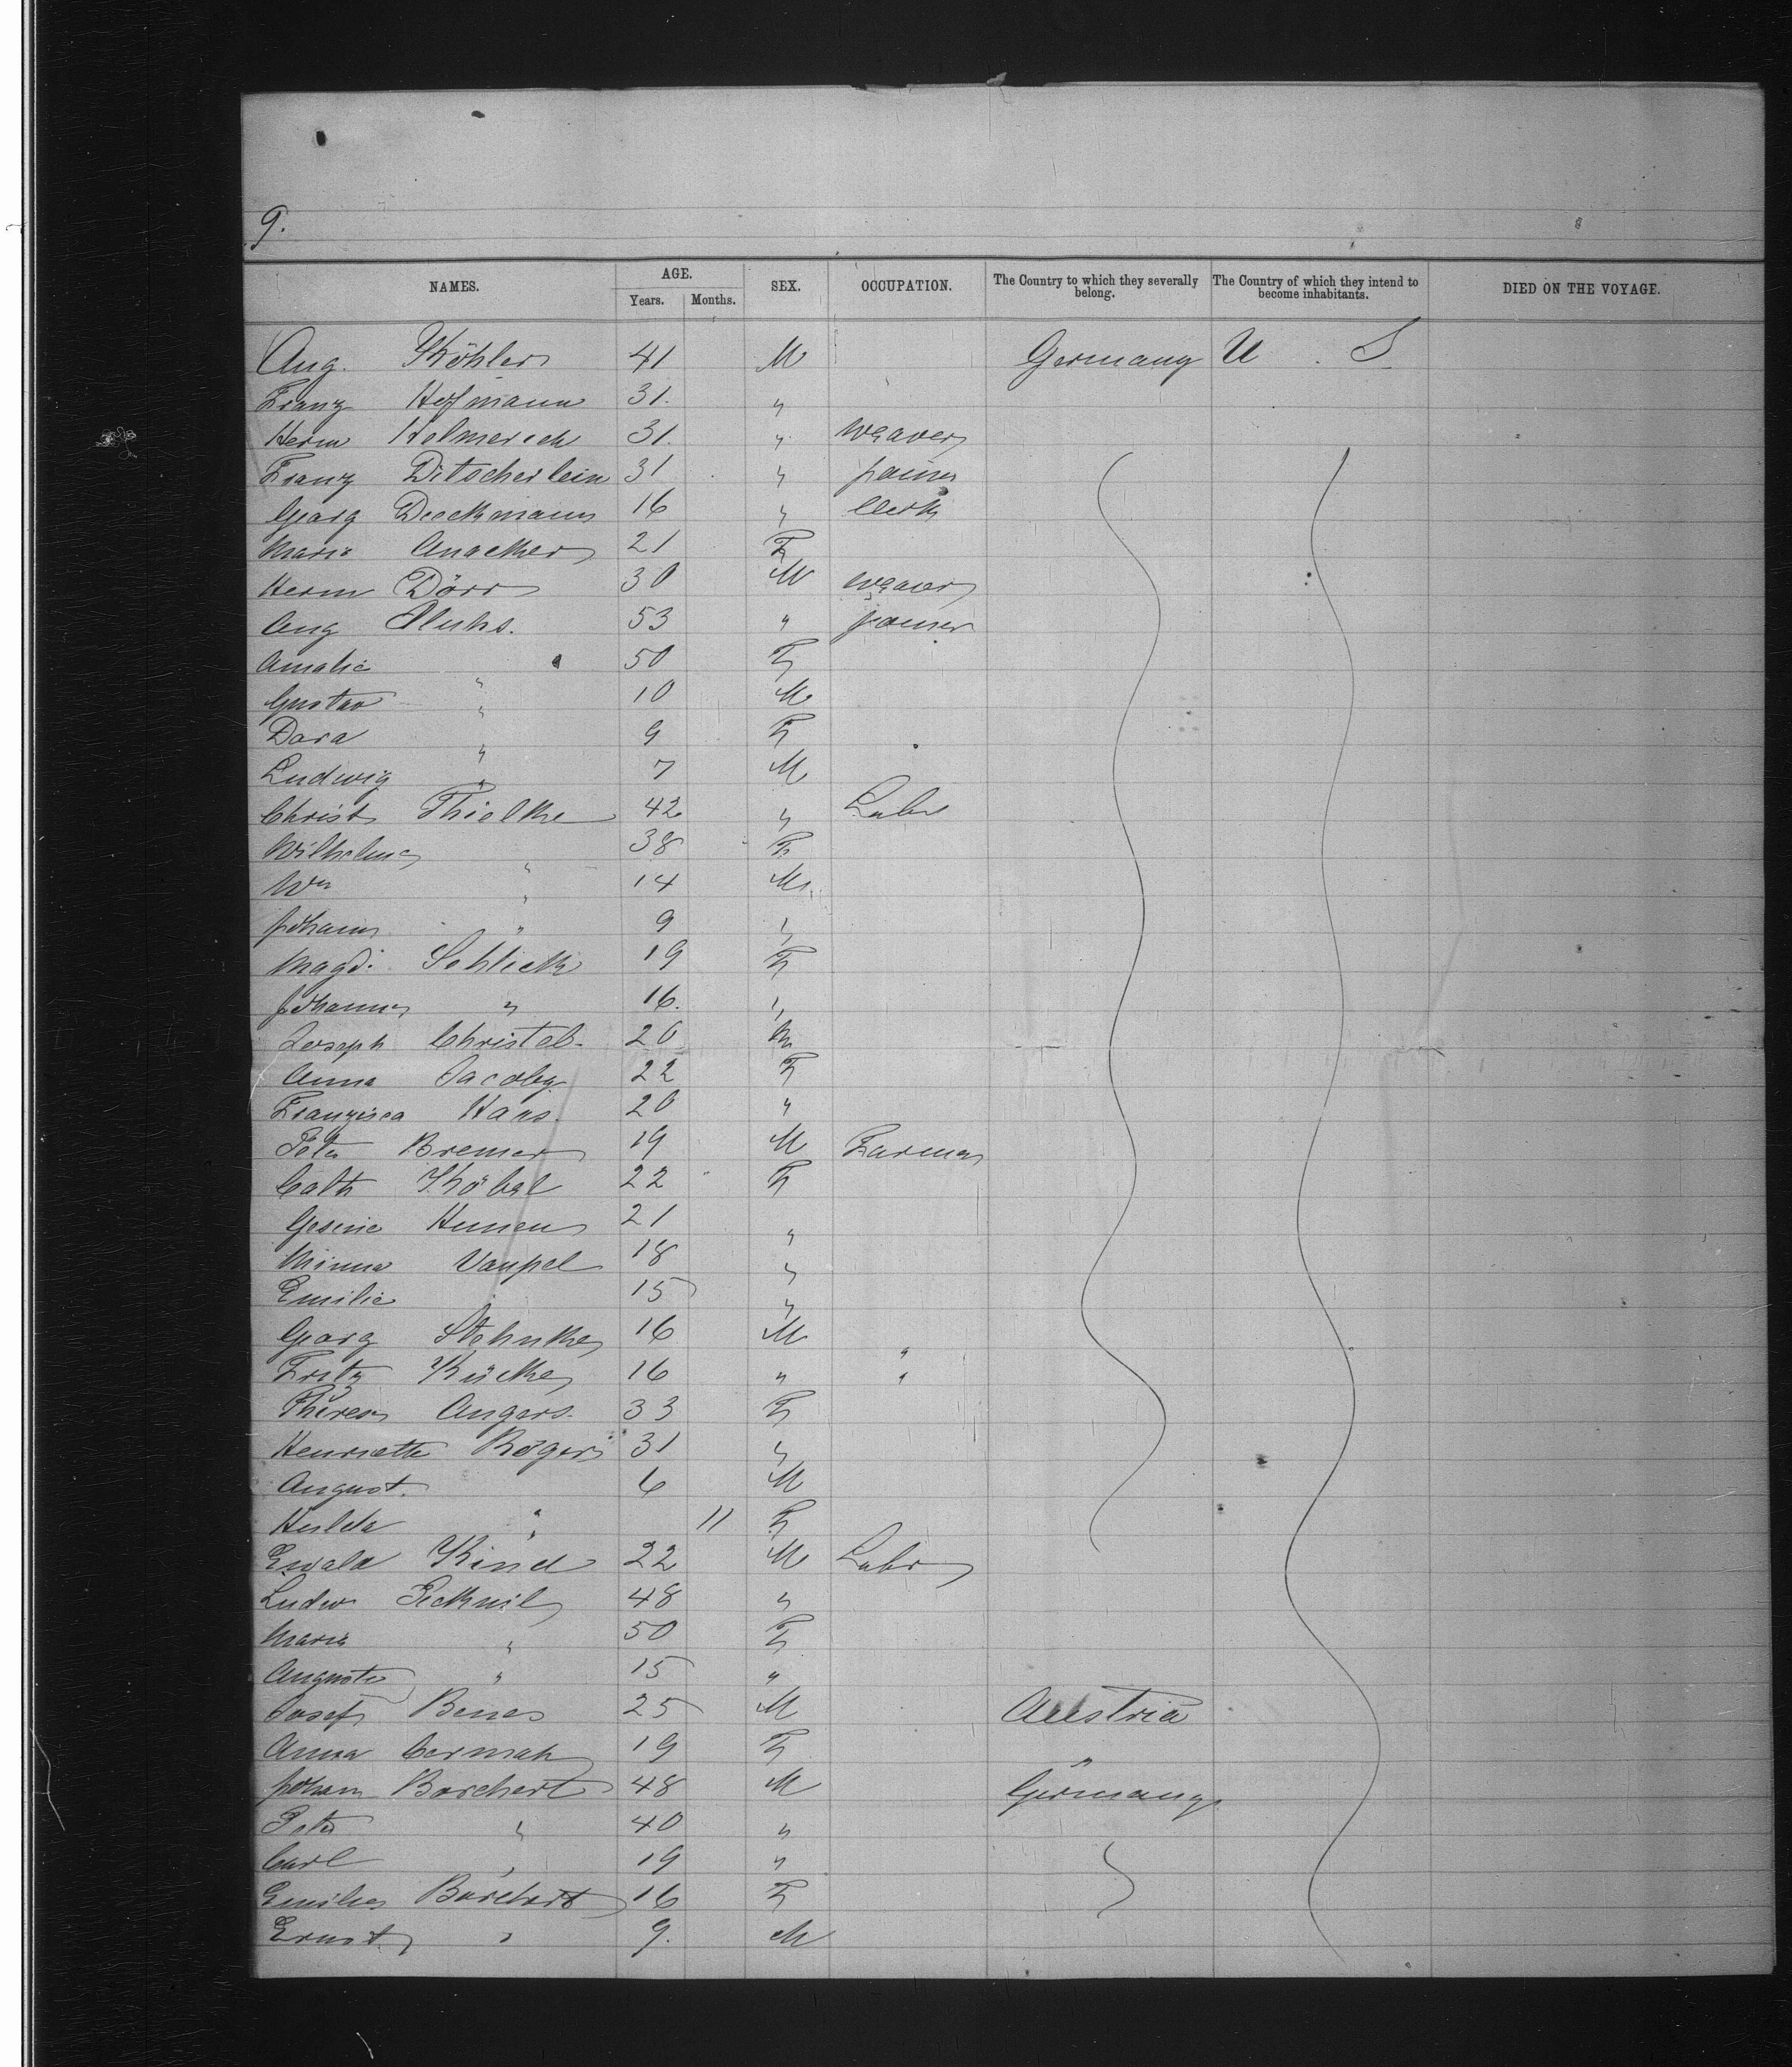 9.
NAMES. AGE. SEX. OCCUPATION. The Country to which they severally belong. The Country of which they intend to become inhabitants. DIED ON THE VOYAGE.
Years. Months.
Aug. Köhler 41 M Germany U. S.
Franz Hofmann 31. "
Herm Helmerich 31. " weaver
Franz Ditscherlein 31 "
Georg Dieckmann 16 " Clerk
Maria Anacker 21 F
Herm Dörr 30 M weaver
Aug 53 "
Amalie " 50 F
Gustav " 10 M
Dora " 9 F
Ludwig " 7 M
Christ Thielke 42 " Labr
Wilhelmа " 38 F
Wm " 14 M
Johann " 9 "
Magd. Schlick 19 F
Johanna " 16. "
Joseph Christel 20 M
Anna Jacoby 22 F
Franzisca Haas. 20 "
Peter Bremer 19 M Farmer
Cath Köbel 22 F
Gesine 21 "
Minna Vaupel 18 "
Emilie " 15 "
Georg 16 M "
Fritz Kücke 16 " "
Theres Angers. 33 F
Henriette Rögers 31 "
August. " 6 M
Hulda " 11 F
Ewald Kind 22 M Labr
Ludw 48 "
Maria " 50 F
Auguste " 15 "
Josef Benes 25 M Austria
Anna Cermak 19 F "
Johann Borchert 48 M Germany
Peter " 40 "
Carl " 19 "
Emilie Borchert 16 F
Ernst " 9. M